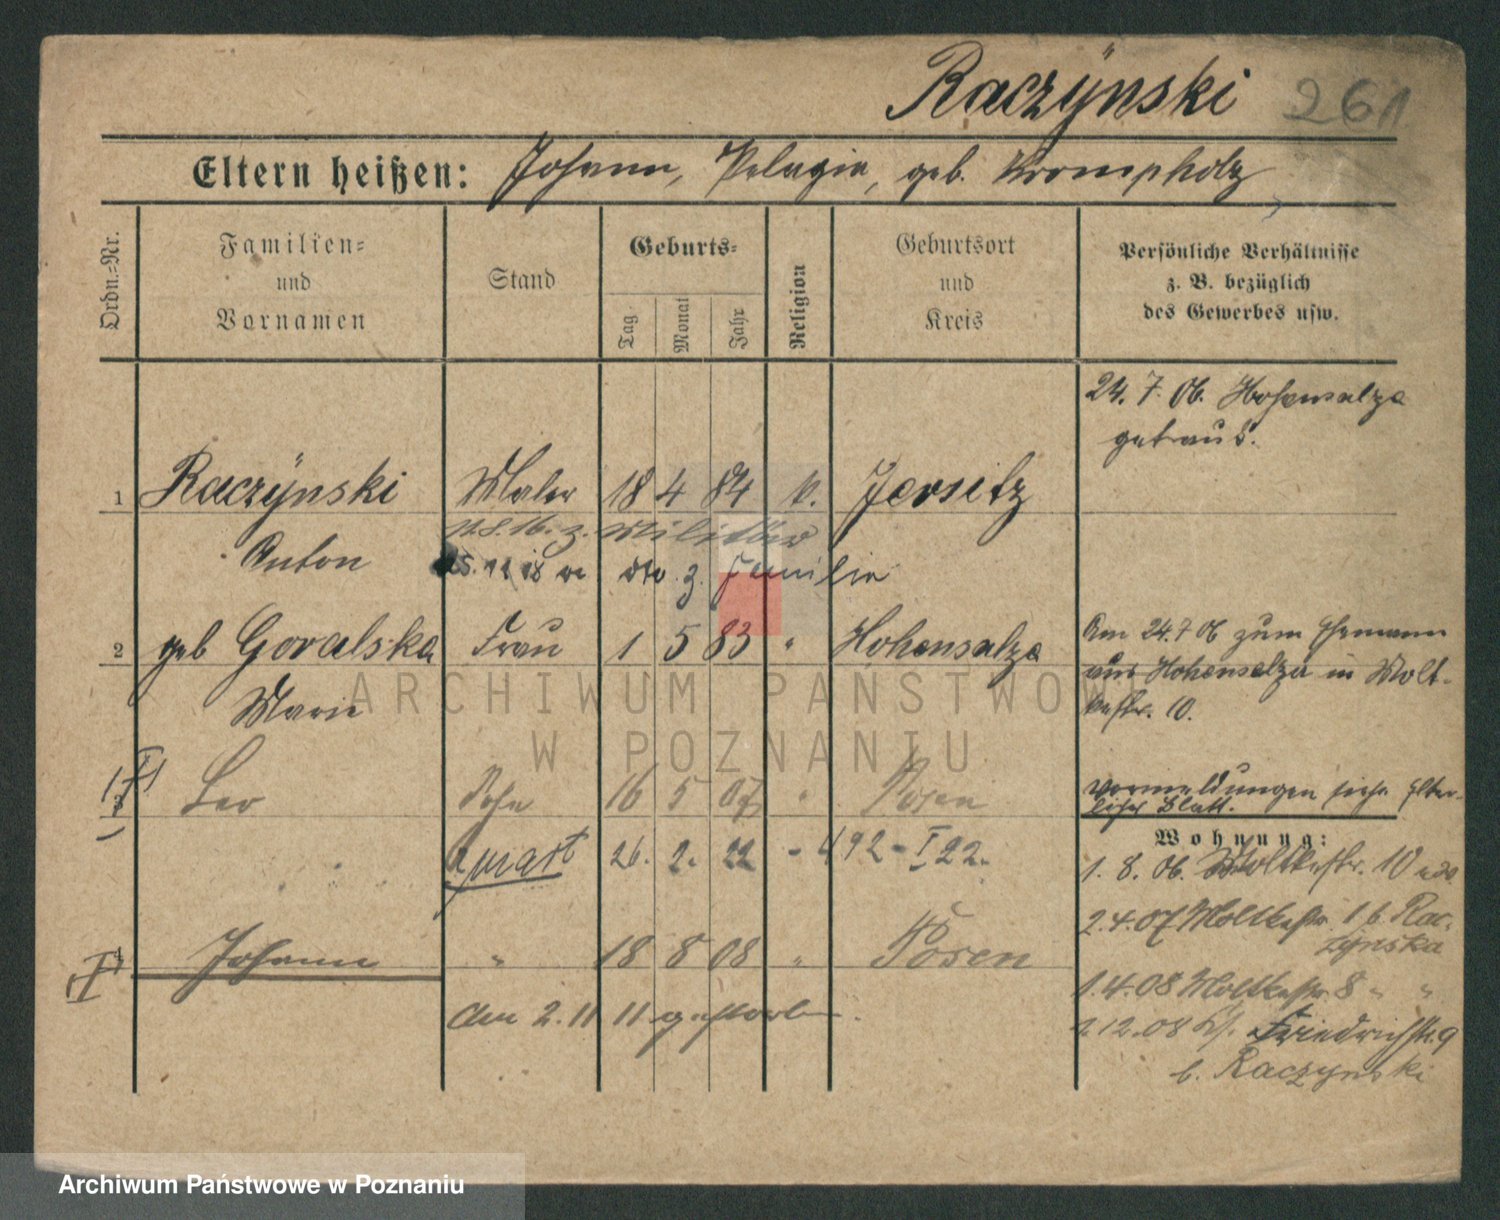 Raczÿnski 261
Eltern heißen: Johann, Pelagia, geb. Krompholz
Ordn.=Nr.
Familien=
und
Vornamen
Stand
Geburts=
Tag
Monat
Jahr
Religion
Geburtsort
und
Kreis
Persönliche Verhältnisse
z. B. bezüglich
des Gewerbes usw.
24. 7. 06. Hohensalza
getraut.
1 Raczÿnski Maler 18 4 84 k. Jersitz
Anton
z. Militär
z. Familie
2 geb Goralska Frau 1 5 83 " Hohensalza
Marie
Am 24.7 06 zum Ehemann
aus Hohensalza in Molt-
kestr. 10.
3 Leo Sohn 16 5 07 " Posen
Vormeldungen siehe elter-
liches Blatt.
Wohnung:
26. 2. 22 - 492 - I 22.
1. 8. 06. Moltkestr. 10
2.4.07 Moltkestr. 1 b. Rac-
zynska
4 Johann " 18 8 08 " Posen
1.4.08 Moltkestr. 8 " "
Am 2.11 11 gestorben.
12.08 Friedrichstr. 9
b. Raczynski
ARCHIWUM PAŃSTWOWE
W POZNANIU
Archiwum Państwowe w Poznaniu